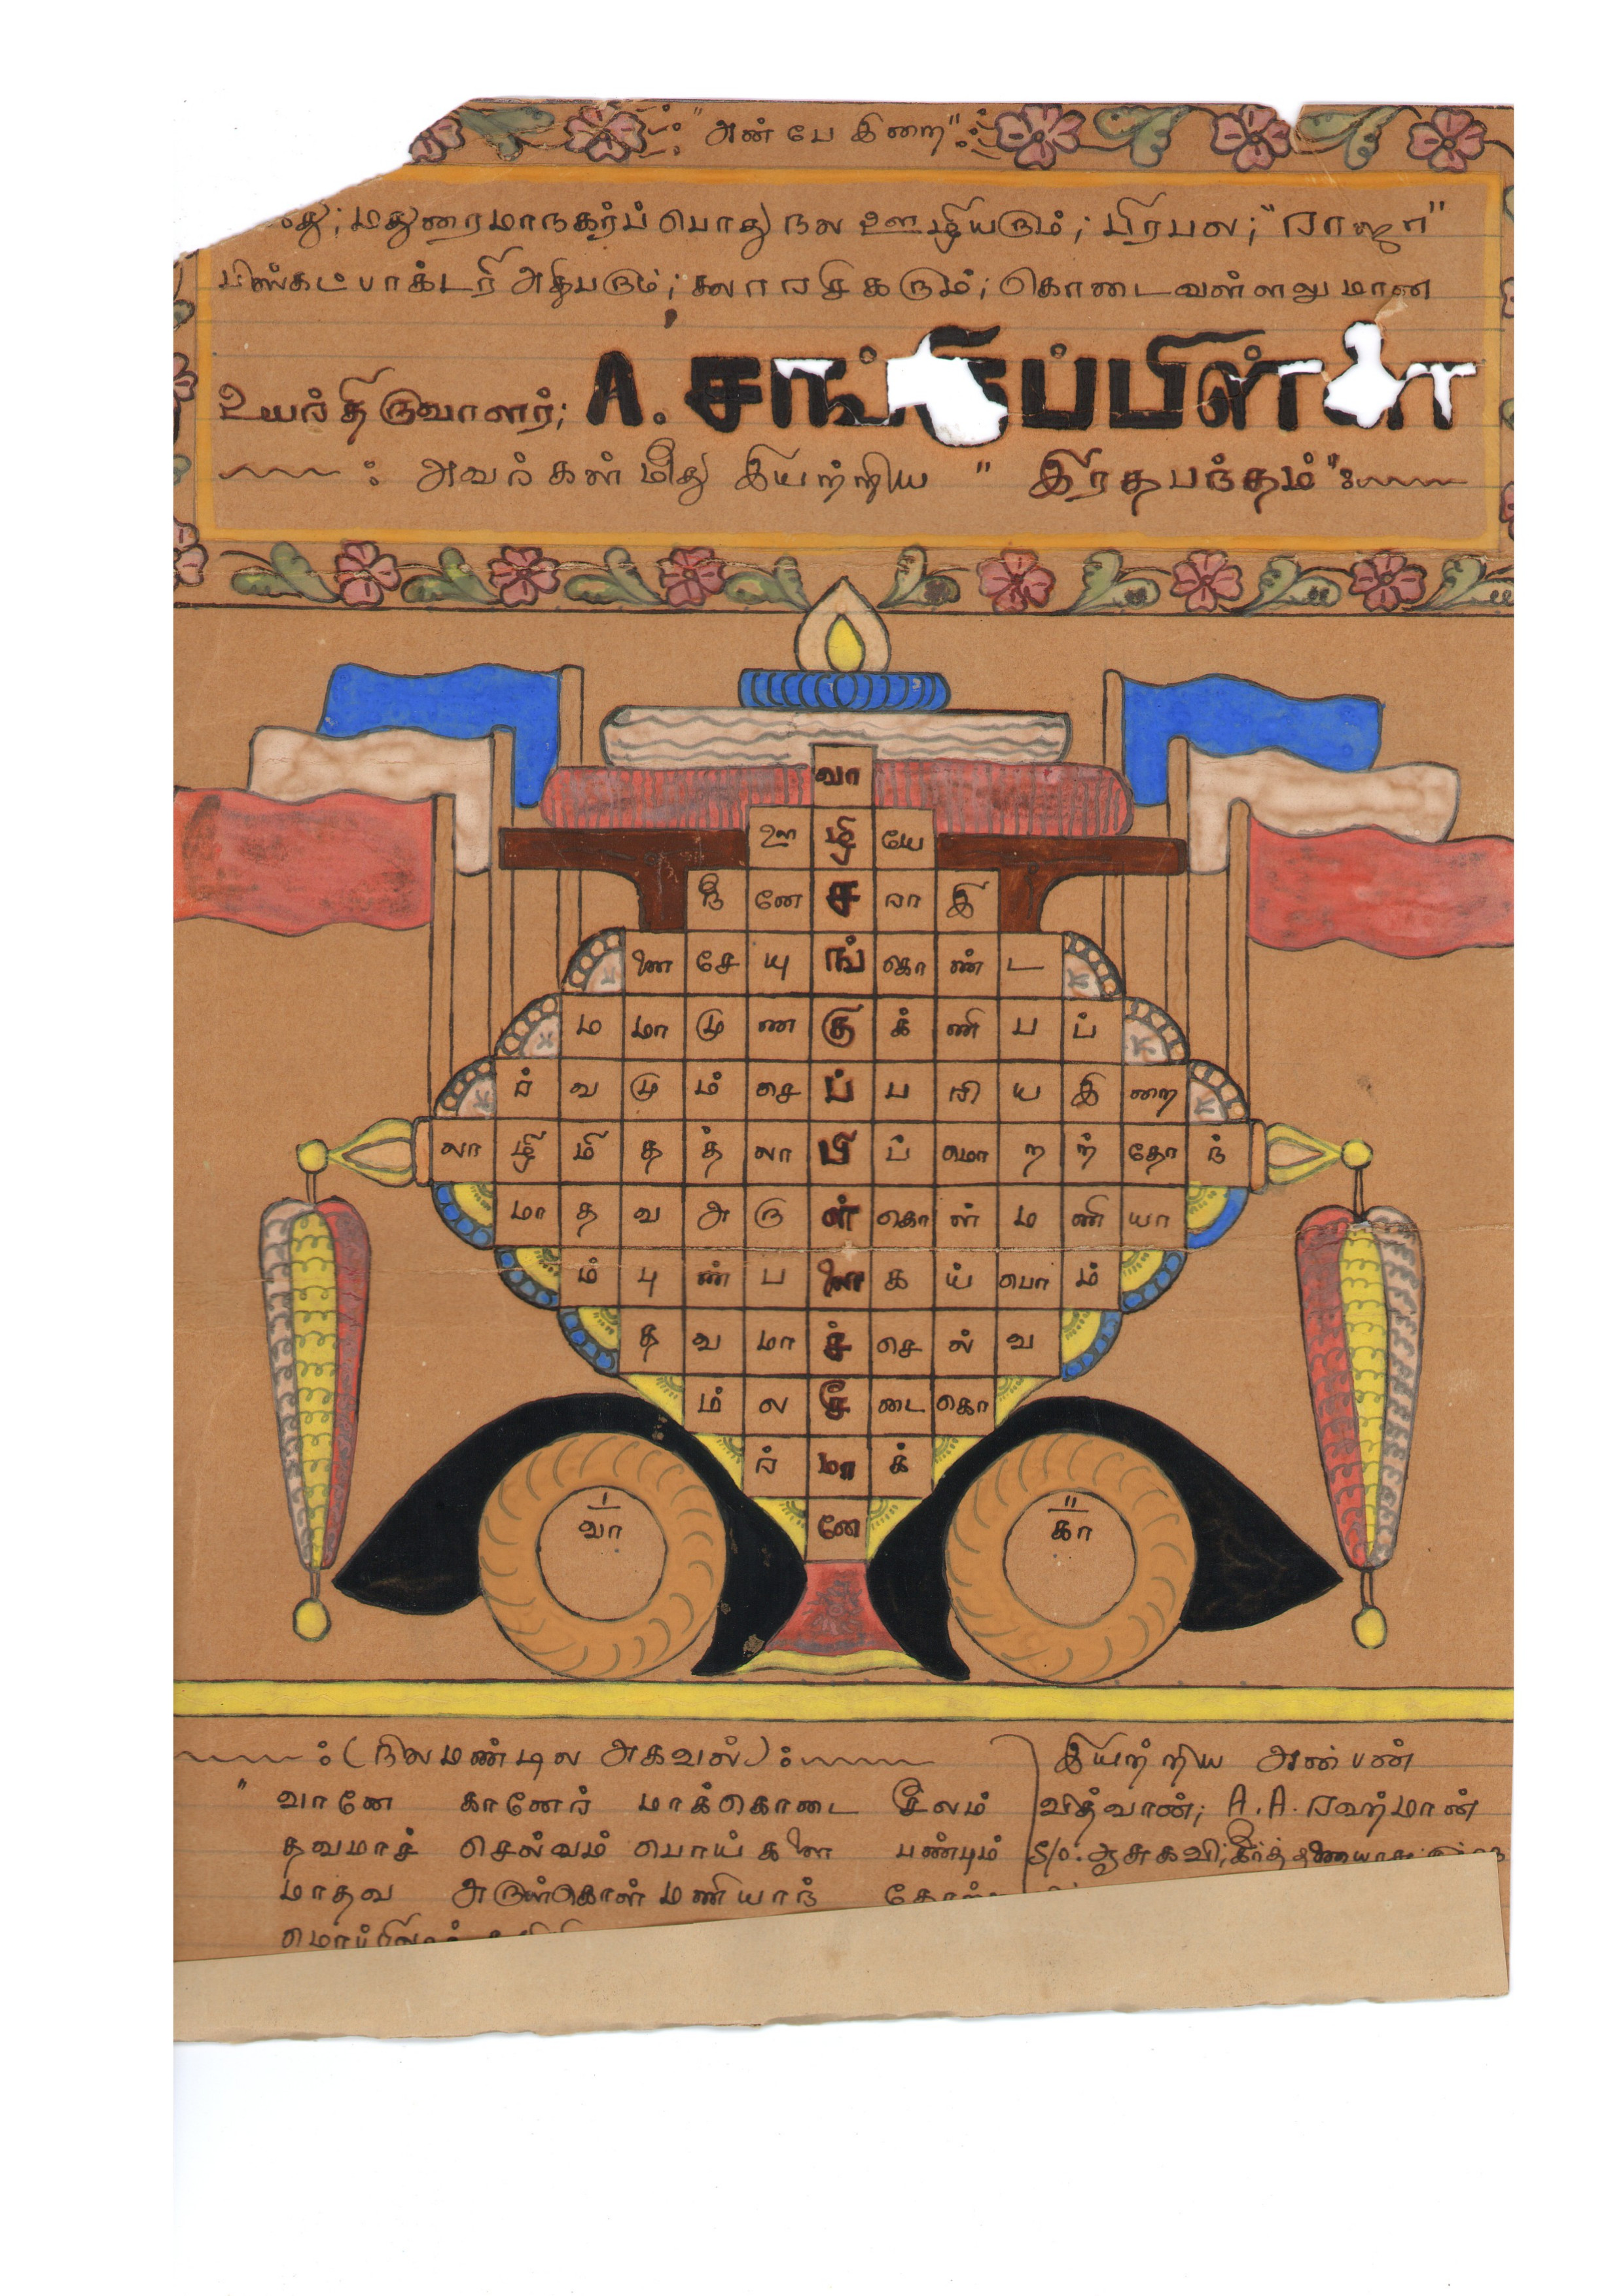 "அன்பே இறை"
மதுரைமாநகர்ப் பொது நல ஊழியரும்; பிரபல; "ராஜா"
பிஸ்கட் பாக்டரி அதிபரும்; கலா ரசிகரும்; கொடை வள்ளலுமான
உயர்திருவாளர்; A.
அவர்கள் மீது இயற்றிய " இரதபந்தம்"
வா
ஊ ழி யே
நி னே ச ரா இ
ணை சே யு ங் கொ ண் ட
ம மா மு ண கு க் ணி ப ப்
ர் வ மு ம் செ ப் ப ரி ய இ றை
லா ழி மி த த் லா பி ப் மொ ற ற் தோ ந்
மா த வ அ ரு ள் கொ ள் ம ணி யா
ம் பு ண் ப ளை க ய் பொ ம்
த வ மா ச் செ ல் வ
ம் ல சீ டை கொ
ர் மா க்
னே
1 வா
11 கா
(நிலமண்டில அகவல்)
" வானே கானேர் மாக்கொடை சீலம்
தவமாச் செல்வம் பொய்களை பண்டிம்
மாதவ அருள்கொள் மணியாந்
இயற்றிய அன்பன்
வித்வான்; A.A. ரஹ்மான்
S/o. ஆசுகவி;